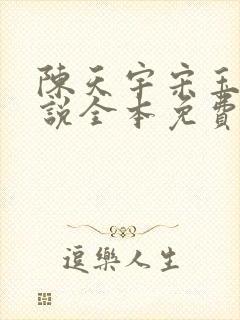 陳天宇宋玉
說全本免費
逗樂人生